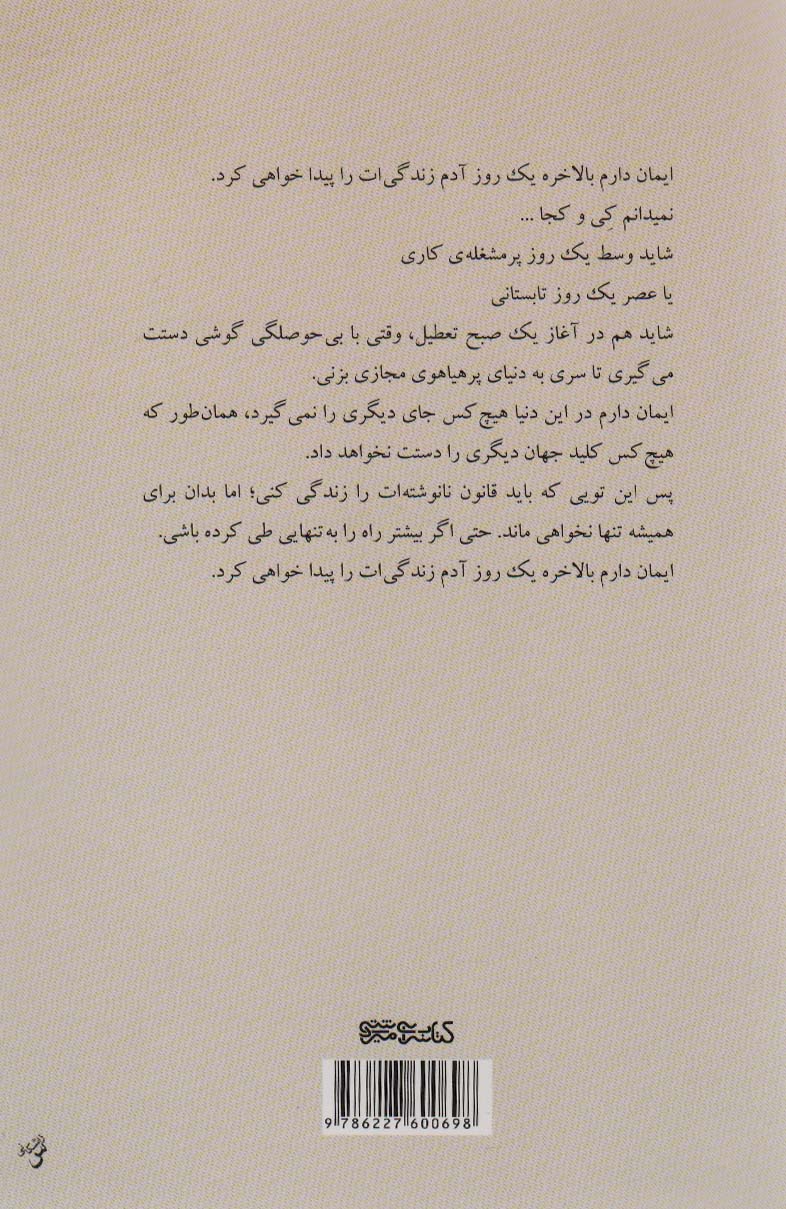 ایمان دارم بالاخره یک روز آدم زندگی‌ات را پیدا خواهی کرد.
نمیدانم کِی و کجا ...
شاید وسط یک روز پرمشغله‌ی کاری
یا عصر یک روز تابستانی
شاید هم در آغاز یک صبح تعطیل، وقتی با بی‌حوصلگی گوشی دستت
می‌گیری تا سری به دنیای پرهیاهوی مجازی بزنی.
ایمان دارم در این دنیا هیچ‌کس جای دیگری را نمی‌گیرد، همان‌طور که
هیچ‌کس کلید جهان دیگری را دستت نخواهد داد.
پس این تویی که باید قانون نانوشته‌ات را زندگی کنی؛ اما بدان برای
همیشه تنها نخواهی ماند. حتی اگر بیشتر راه را به‌تنهایی طی کرده باشی.
ایمان دارم بالاخره یک روز آدم زندگی‌ات را پیدا خواهی کرد.
9 786227 600698